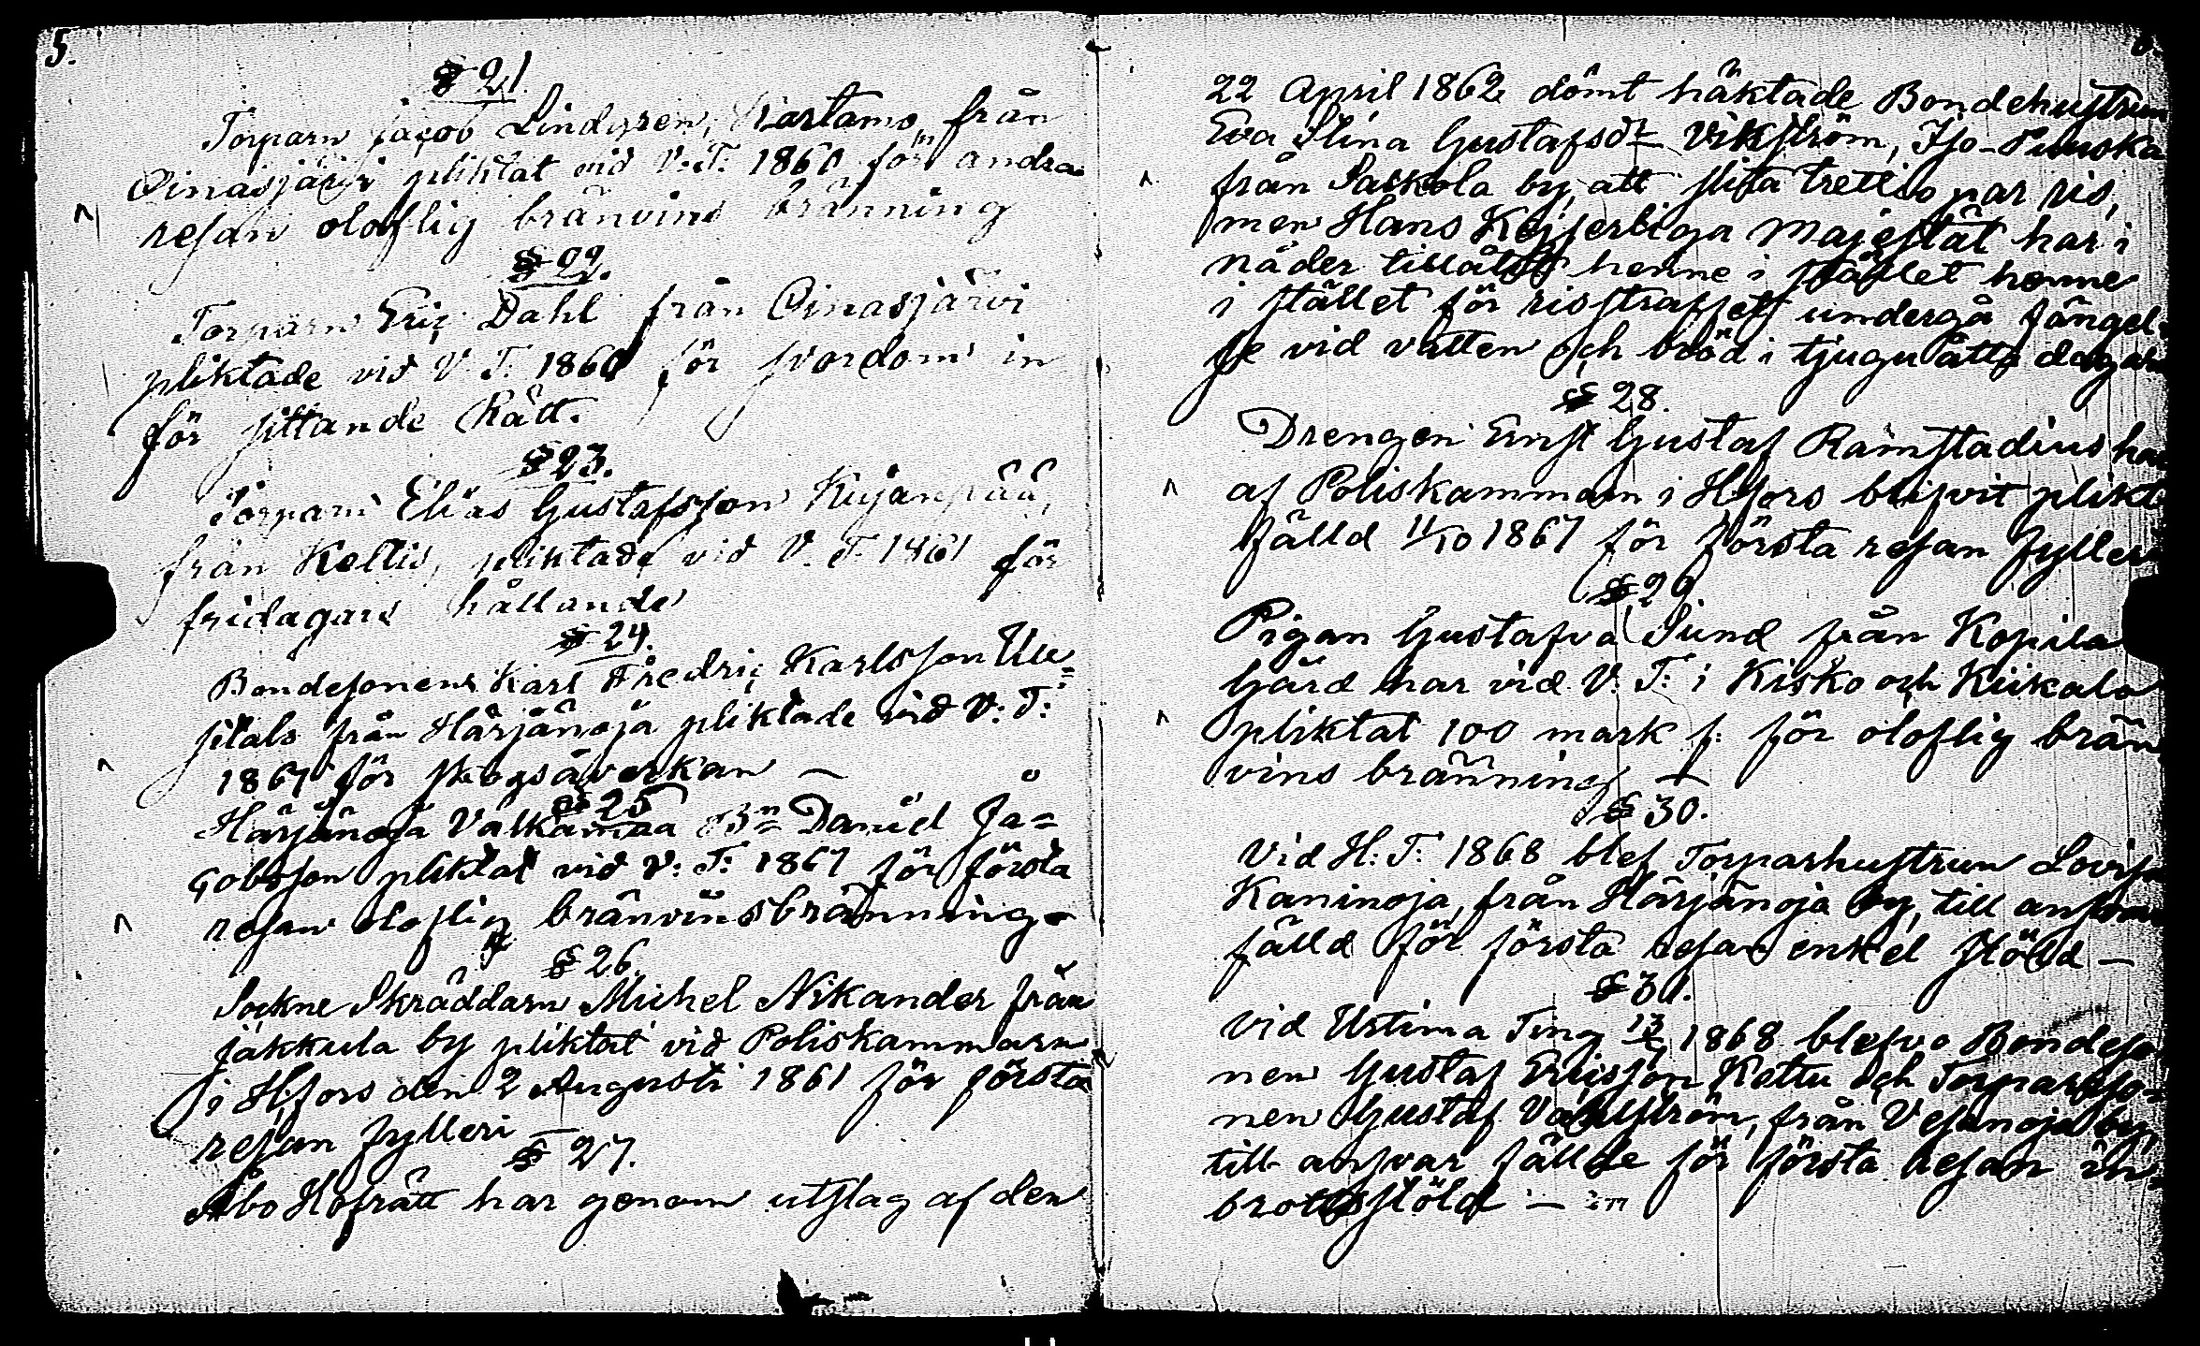 5.
§ 21.
Torparn Jacob Lindgren, Kartano, från
Oinasjärvi pliktat vid V: T: 1860 för andra
resan oloflig bränvins bränning
§ 22.
Torparn Eric Dahl från Oinasjärvi
pliktade vid V. T. 1860 för svordom in
för sittande Rätt.
§ 23.
Torparn Elias Gustafsson Kujanpää,
från Keltis, pliktade vid V. T. 1861 för
fridagars hållande
§ 24.
Bondesonen Karl Fredric Karlsson Uu=
sitalo från Härjänoja pliktade vid V: T:
1867 för skogsåverkan —
§ 25
Härjänoja Valkamaa Bn= Daniel Ja=
cobsson pliktat vid V: T: 1867 för första
resan oloflig bränvinsbränning
§ 26.
Sockne Skräddarn Michel Nikander från
Jakkula by pliktat vid Poliskammarn
i H,fors den 2 Augusti 1861 för första
resan fylleri —
§ 27.
Åbo Hofrätt har genom utslag af den
22 April 1862 dömt häktade Bondehustrun
Eva Stina Gustafsdt Vikström, Iso-
från Saukola by, att slita trettio par ris,
men Hans Kejserliga Majestät har i
nåder tillåtit henne i stället henne
i stället för risstraffett undergå fängel-
se vid vatten och bröd i tjuguåtta dagar
§ 28.
Drengen Ernst Gustaf Ramstadius ha
af Poliskammarn i H,fors blifvit plikt
fälld 11/10 1867 för första resan fylleri
§ 29
Pigan Gustafva Sund från Kopila
Gård har vid V: T: i Kisko och Kiikala
pliktat 100 mark f: för oloflig brän
vins bränning —
§ 30.
Vid H: T: 1868 blef Torparhustrun Lovisa
Kaninoja, från Härjänoja by, till ansvar
fälld för första resan enkel stöld —
§ 31.
Vid Urtima Ting 1868 blefvo Bondeso
nen Gustaf Ericsson Kettu och Torpareso=
nen Gustaf Vahlström, från Vesanoja by,
till ansvar fällde för första resan in=
brottsstöld —